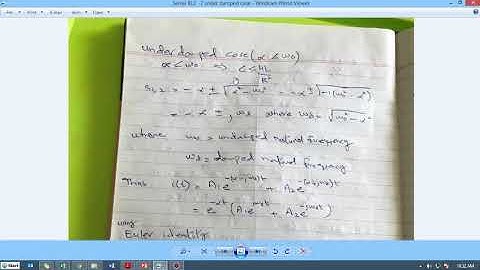 Series RLC - 2 under damped case - Windows Photo Viewer
under damped case (α < ω₀)
α < ω₀ ⇒ C < 4L
R²
S₁,₂ = - α ± √α² - ω₀² = - α ± √-1(ω₀² - α²)
= - α ± jωd where ωd = √ω₀² - α²
where ω₀ = undamped natural frequency
ωd = damped natural frequency
i(t) = A₁e^-(α-jωd)t + A₂e^-(α+jωd)t
= e^-αt (A₁e^jωdt + A₂e^-jωdt)
using
Euler identity